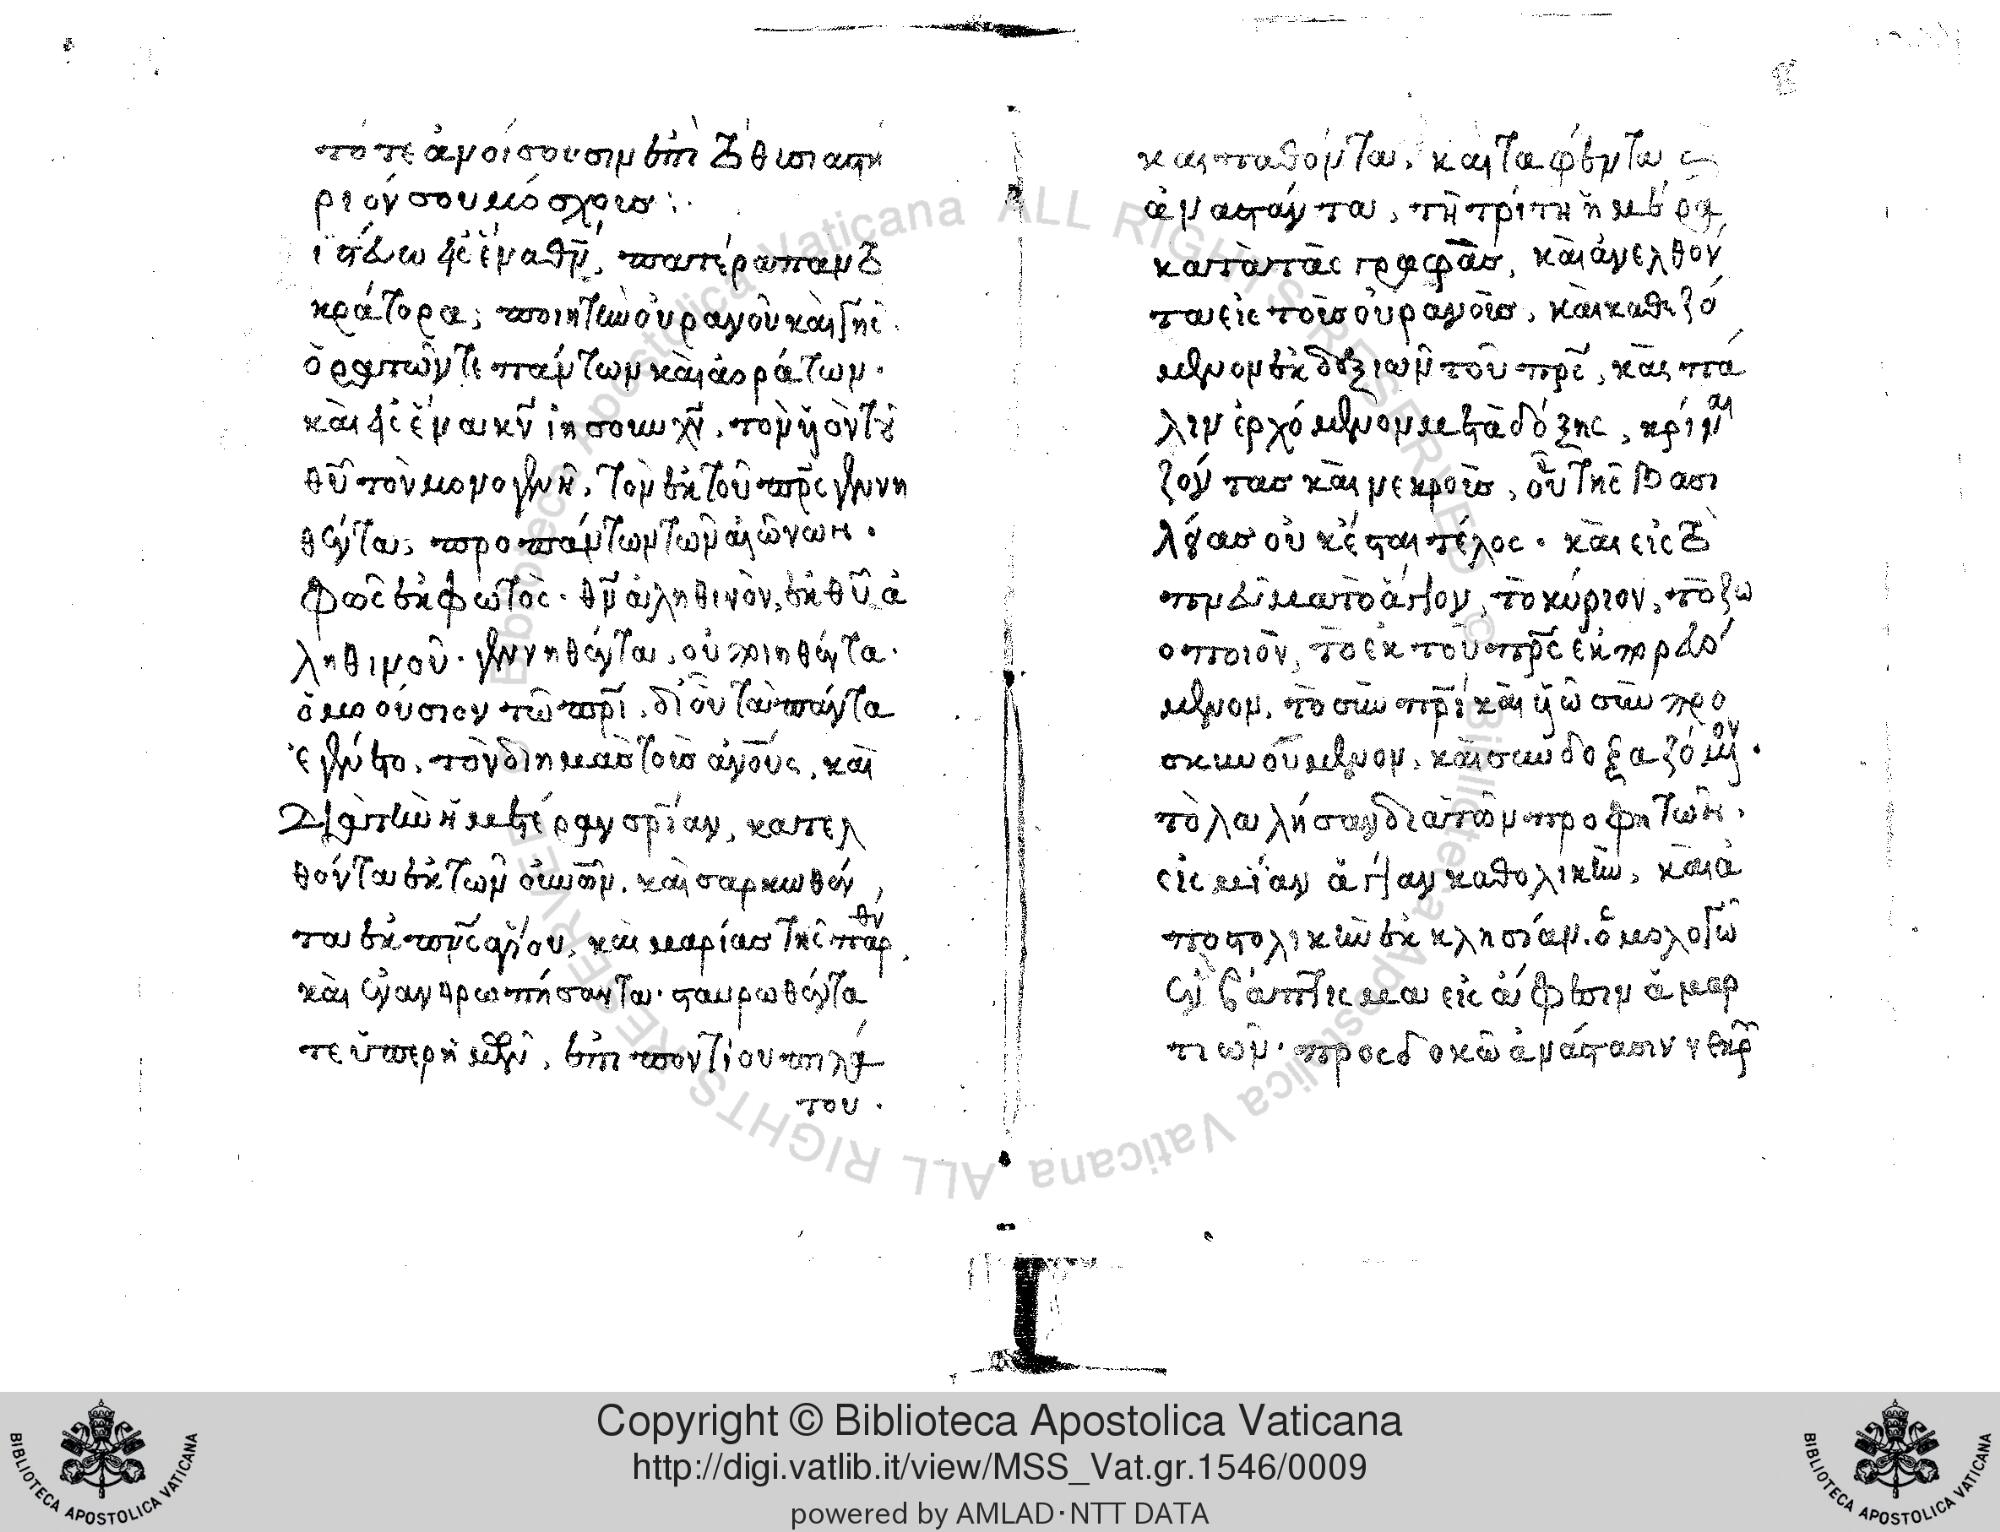 τότε ἀνοίσουσιν ἐπὶ τὸ θυσιαστή
ριόν σου μόσχους:
πιστεύω εἰς ἕνα θν, πατέρα παντο
κράτορα, ποιητὴν οὐρανοῦ καὶ γῆς
ὁρατῶν τε πάντων καὶ ἀοράτων·
καὶ εἰς ἕνα κν ἰησουν χν, τὸν υἱὸν τοῦ
θυ τὸν μονογενῆ, τὸν ἐκ τοῦ πρς γεννη
θέντα, προ πάντων τῶν αἰώνων·
φῶς ἐκ φωτὸς· θν ἀληθινὸν, ἐκ θυ ἀ
ληθινοῦ· γεννηθέντα, οὐ ποιηθέντα·
ὁμοούσιον τῶ πρι, δι οὗ τὰ πάντα
ἐγένετο, τὸν δι ἡμᾶς τοὺς ἀνους, καὶ
διὰ τὴν ἡμετέραν σρίαν, κατελ
θόντα ἐκ τῶν οὐνων, καὶ σαρκωθέν
τα ἐκ πνς αγίου, καὶ μαρίας τῆς παρθν,
καὶ ἐνανθρωπήσαντα· σταυρωθέντα
τε ὑπερ ἡμῶν, ἐπὶ ποντίου πιλά
του·
και παθόντα, καὶ ταφέντα
ἀναστάντα, τῆ τρίτη ἡμέρα
κατὰ τὰς γραφὰς, καὶ ἀνελθόν
τα εἰς τοὺς οὐρανοὺς, καὶ καθεζό
μενον ἐκ δεξιῶν τοῦ πρς, καὶ πά
λιν ἐρχόμενον μετὰ δόξης, κρίναι
ζόντας καὶ νεκροὺς, οὗ τῆς βασι
λείας οὐκ ἔσται τέλος· καὶ εἰς τὸ
πνεῦμα τὸ ἅγιον, τὸ κύριον, τὸ ζω
οποιόν, τὸ ἐκ τοῦ πρς ἐκπορευό
μενον, τὸ σὺν πρι καὶ υἱῶ συν προ
σκυνούμενον, καὶ συνδοξαζόμενον·
τὸ λαλήσαν διὰ τῶν προφητῶν,
εἰς μίαν ἁγίαν καθολικὴν, καὶ ἀ
ποστολικὴν ἐκκλησίαν. ὁμολογῶ
ἓν βάπτισμα εἰς ἄφεσιν ἁμαρ
τιῶν· προσδοκῶ ἀνάστασιν νεκρ
Copyright © Biblioteca Apostolica Vaticana
http://digi.vatlib.it/view/MSS_Vat.gr.1546/0009
powered by AMLAD·NTT DATA
BIBLIOTECA APOSTOLICA VATICANA
BIBLIOTECA APOSTOLICA VATICANA
ALL RIGHTS RESERVED © Biblioteca Apostolica Vaticana ALL RIGHTS RESERVED © Biblioteca Apostolica Vaticana